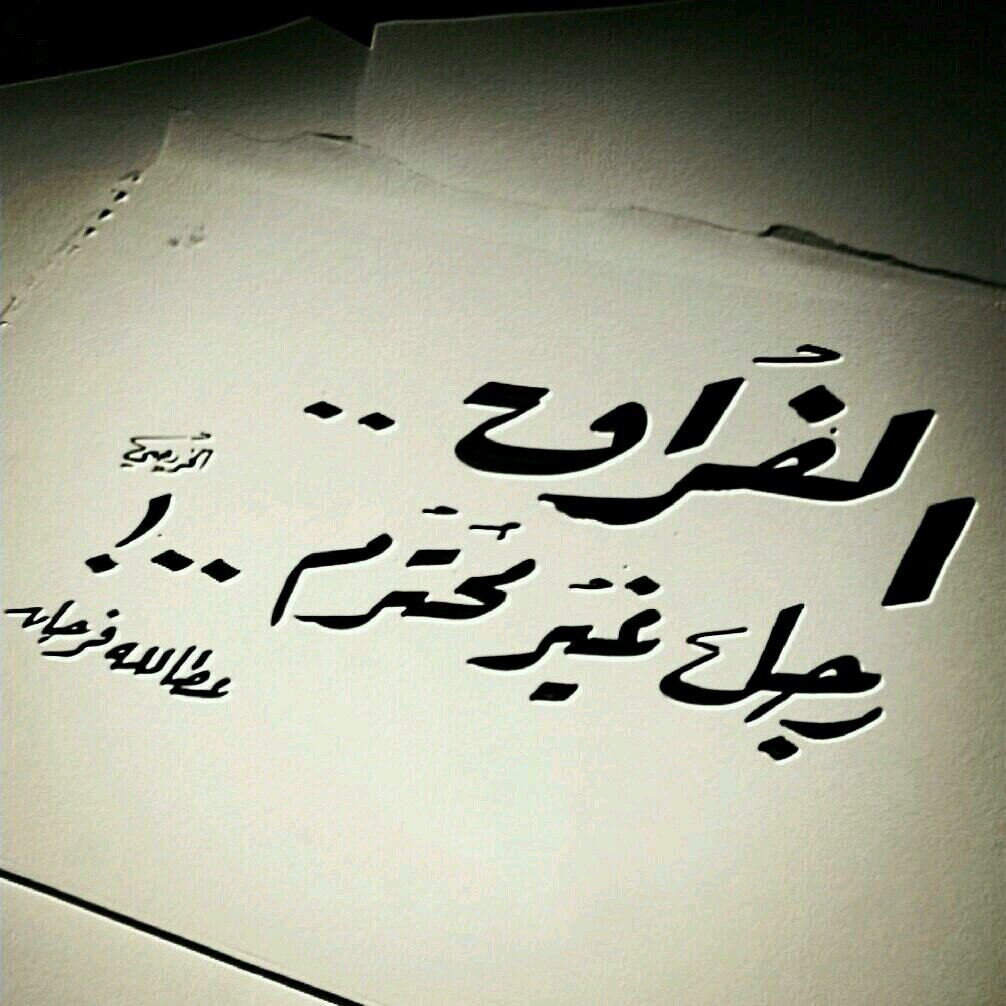 الفراق ..
رجل غير محترم ..!
عطاالله فرحان